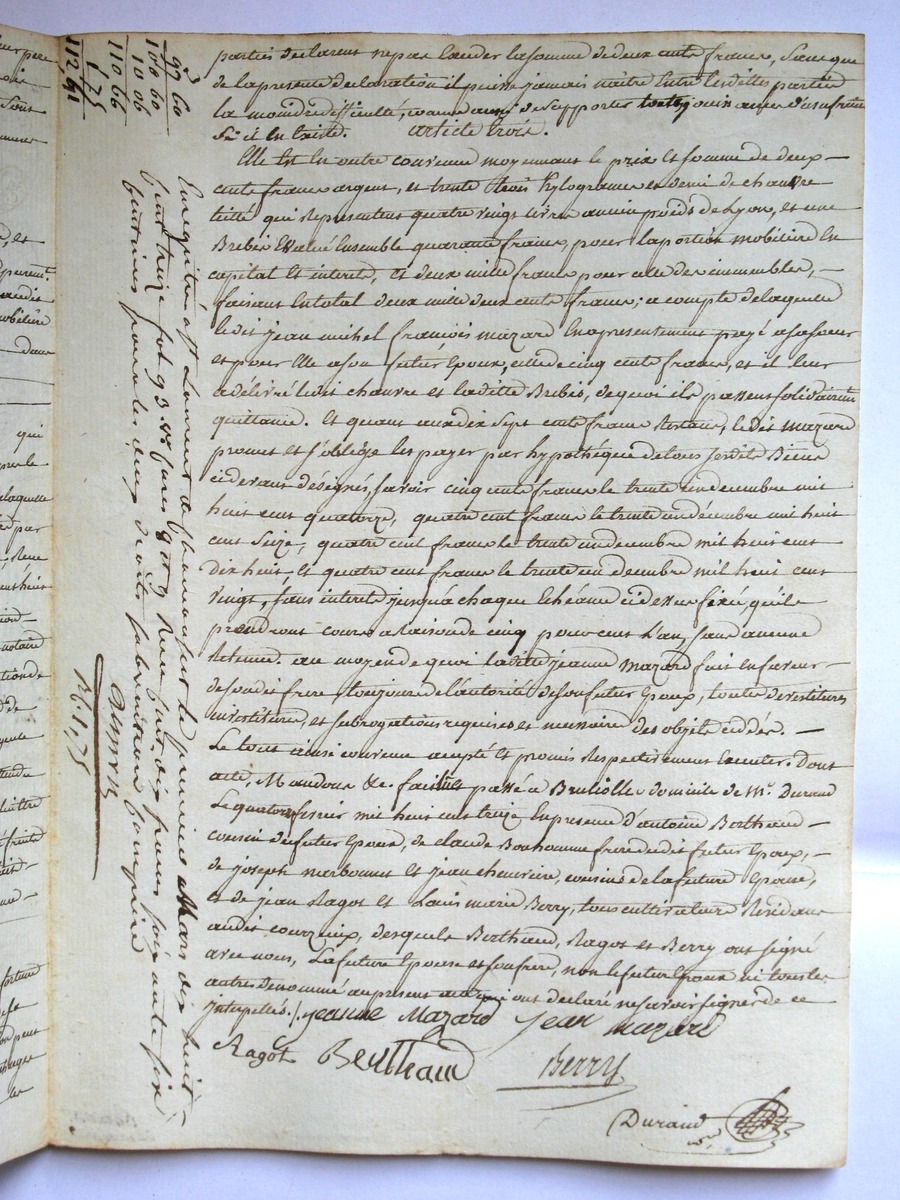 parties declarent ne pas exceder la somme de deux cents francs, sans que
de la presente declaration il puisse jamais naitre entre lesdittes parties
la moindre difficulté, comme aussi de supporter toute jouissance d'usufruit
s'il en existe. article trois.
Elle est en outre convenue moyennant le prix et somme de deux
cents francs argent, et trente trois kylogrames et demi de chanvre
teillé qui representent quatre vingt livres ancien poids de Lyon, et une
Brebis Evalué Ensemble quarante francs, pour la portion mobiliere en
capital et interets, et deux mille francs pour celle des immeubles,
faisant en total deux mille deux cents francs; a compte de laquelle
ledit jean michel françois mazard en a presentement payé a sa soeur
et pour Elle a son futur Epoux, celle de cinq cents francs, et il leur
a delivré ledit chanvre et laditte Brebis, de quoi ils passent solidairement
quittance. Et quant aux dix sept cents francs restans, ledit Mazard
promet et s'oblige les payer par hypothéque de tous sesdits Biens
cidevant désignés, savoir cinq cents francs le trente un decembre mil
huit cent quatorze, quatre cent francs le trente un décembre mil huit
cent seize, quatre cent francs le trente un decembre mil huit cent
dix huit, et quatre cent francs le trente un decembre mil huit cent
vingt, sans interets jusqu'a chaque Echéance cidessus fixée, qu'ils
prendront cours a raison de cinq pour cent l'an, sans aucune
retenue. au moyen de quoi laditte jeanne Mazard fait en faveur
de sondit frere toujours de l'autorité de son futur Epoux, toutes devestitures
investitures, et subrogations requises et necessaires des objets cédés.
Le tout ainsi convenu accepté et promis respectivement executer. Dont
acte, Mandons &c. fait et passé a Brullioles domicile de Mr. Durand
Le quatorze fevrier mil huit cent treize en presence d'antoine Berthaud
cousin du futur Epoux, de claude Bonhomme frere dudit futur Epoux,
de joseph narbonnet et jean chenevier, cousins de la future Epouse,
et de jean Ragot et Louis marie Berry, tous cultivateurs Residans
audit courzieux, desquels Berthaud, Ragot et Berry ont signé
avec nous, la future Epouse et son frere, non le futur Epoux ni tous les
autres denommés au present acte qui ont declaré ne savoir signer de ce
Interpellés./.
jeanne Mazard jean mazard
Ragot Berthaud Berry
Durand
Enregistré a St Laurent de chamousset le premier Mars dix huit
cent treize fol. 93 Reçu quatre vingt dix francs soixante six
centimes pour les deux droits subvention comprise
R. 1,75
99 60
100 60
10 06
110 66
1 75
112,41